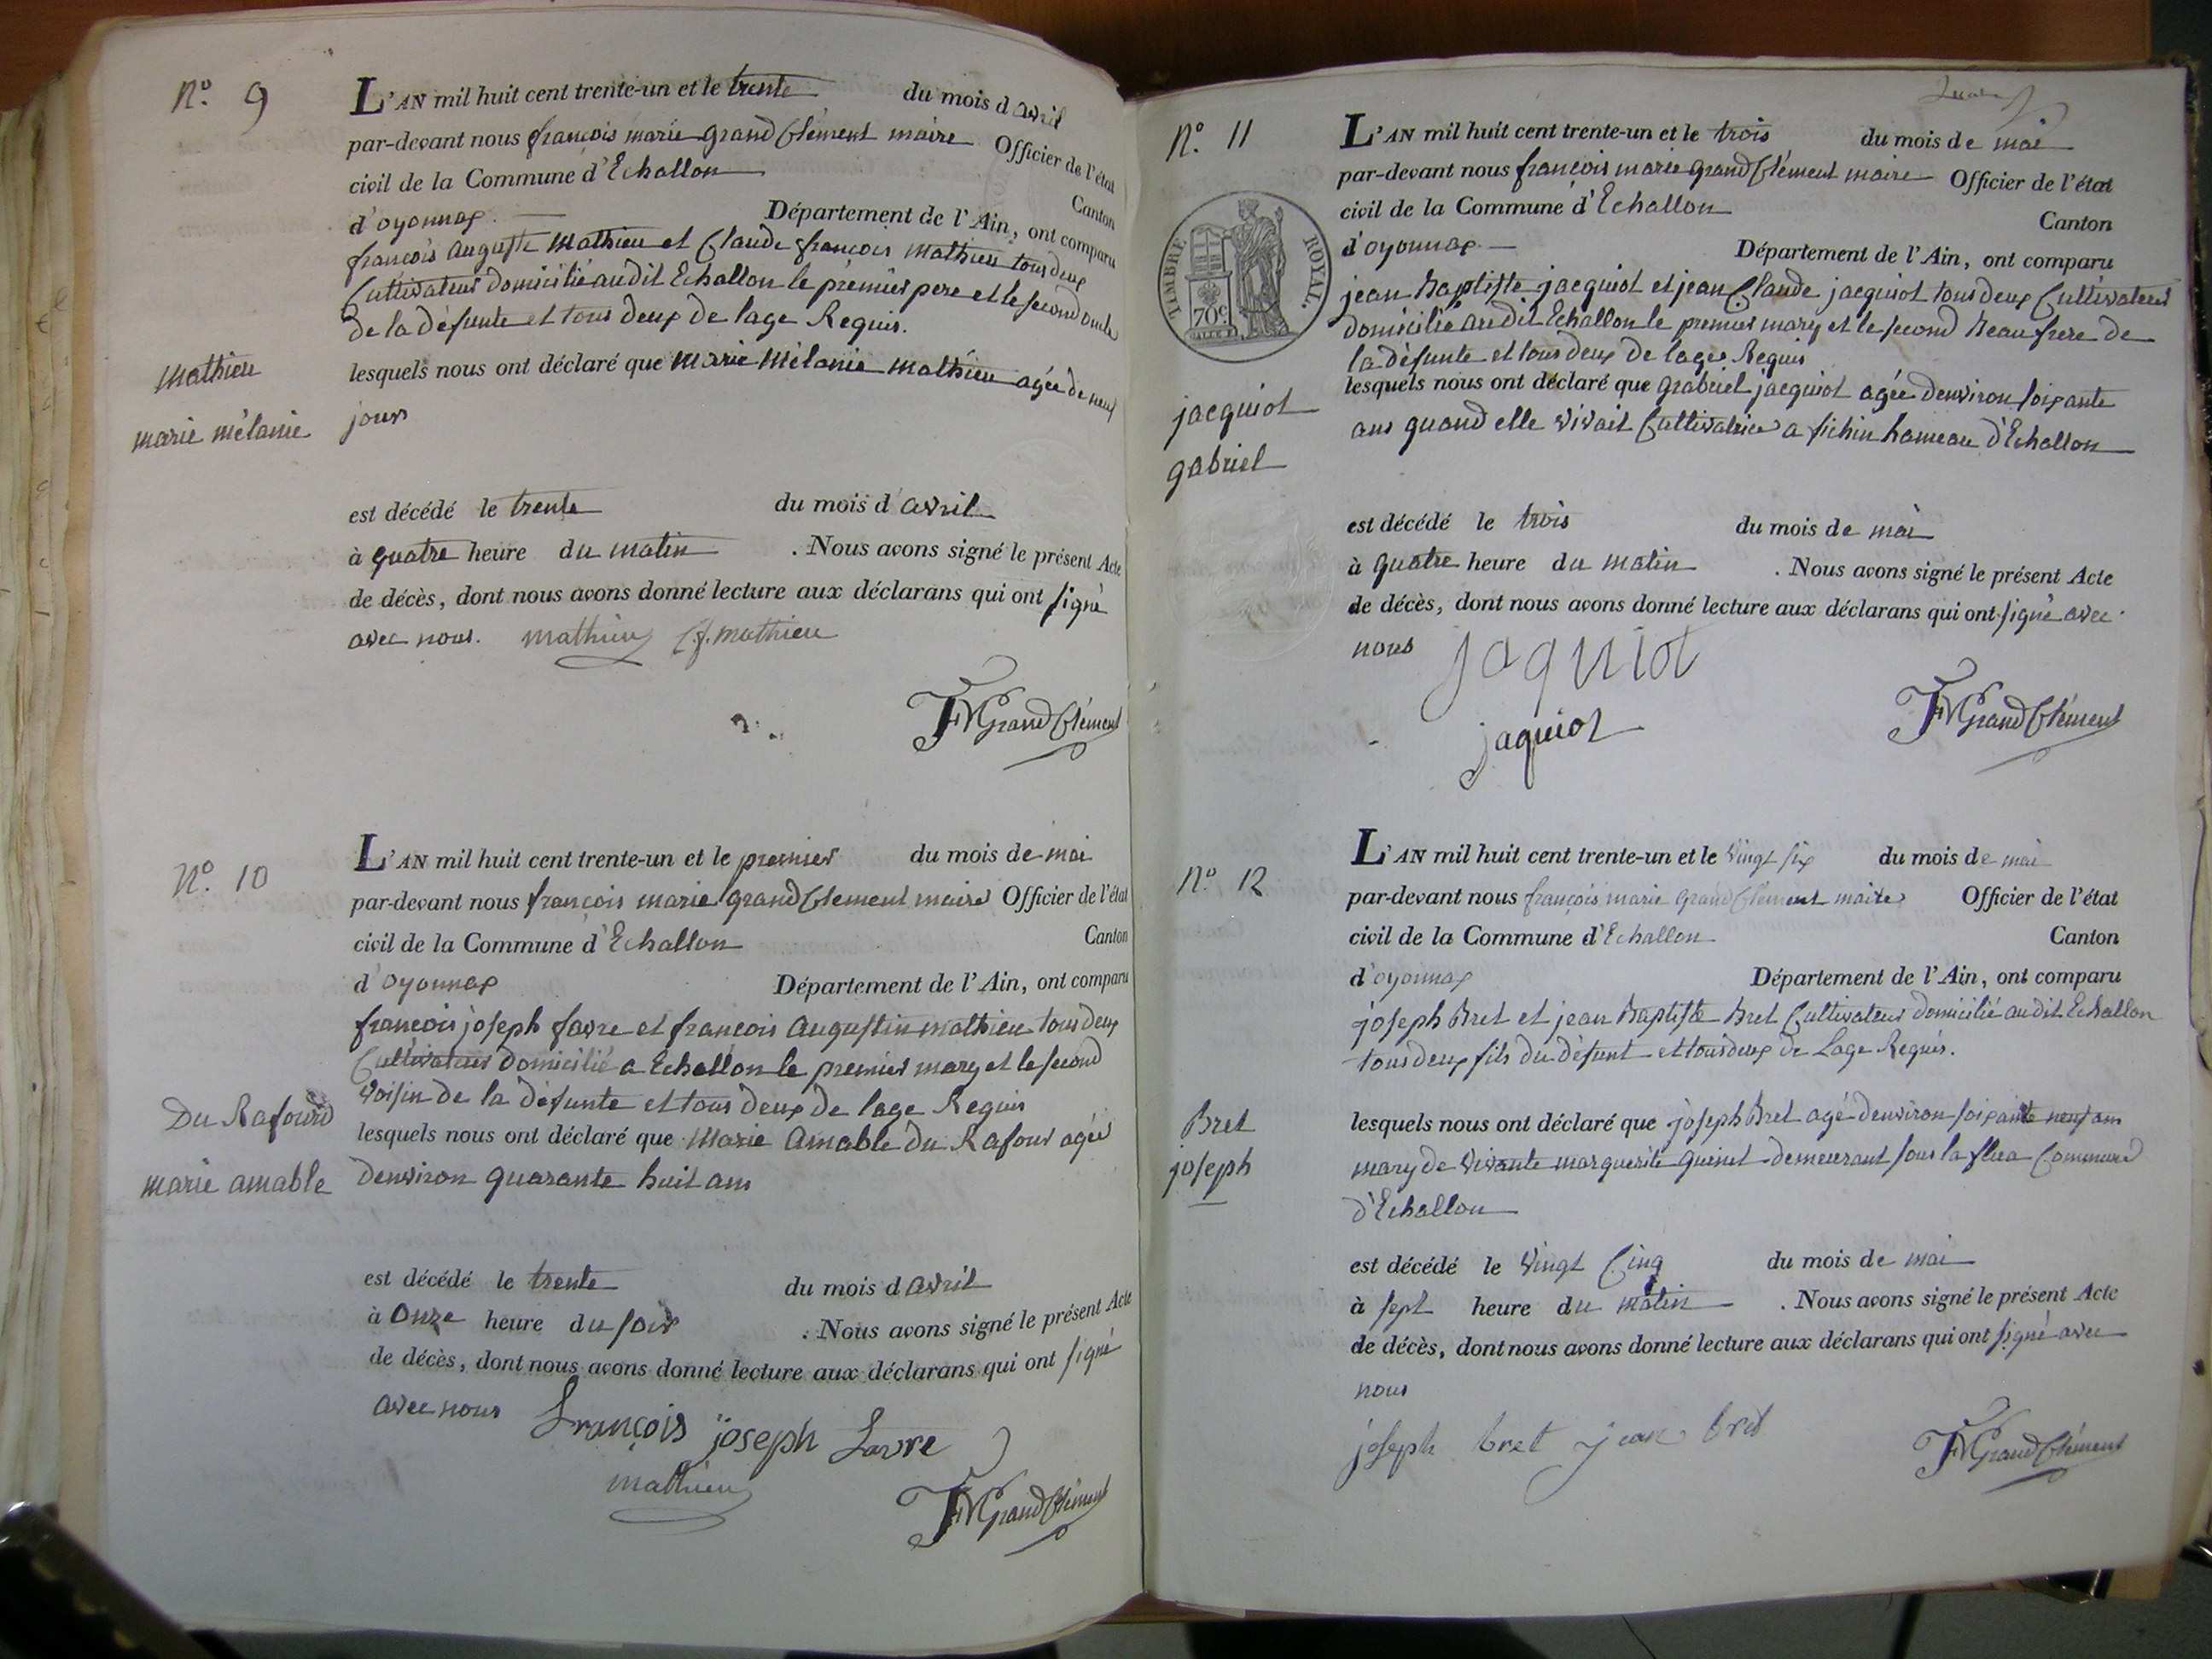 N.° 9
L'AN mil huit cent trente-un et le trente du mois d avril
par-devant nous françois marie grand Clément maire Officier de l'état
civil de la Commune d'Echallon Canton
d'oyonnax. Département de l'Ain, ont comparu
françois auguste Mathieu et Claude françois Mathieu tous deux
Cultivateur domicilié audit Echallon le premier pere et le second oncle
de la défunte et tous deux de lage Requis.
Mathieu
marie mélanie
lesquels nous ont déclaré que Marie Mélanie Mathieu agée de neuf
jours
est décédé le trente du mois d'avril
à quatre heure du matin . Nous avons signé le présent Acte
de décès, dont nous avons donné lecture aux déclarans qui ont signé
avec nous. mathieu C.f. mathieu
FMGrandClément
N.° 10
L'AN mil huit cent trente-un et le premier du mois de mai
par-devant nous françois marie grand Clement maire Officier de l'état
civil de la Commune d'Echallon Canton
d'oyonnax Département de l'Ain, ont comparu
françois joseph favre et françois Augustin mathieu tous deux
Cultivateur domicilié a Echallon le premier mary et le second
voisin de la défunte et tous deux de lage Requis
Du Rafour
marie amable
lesquels nous ont déclaré que Marie Amable Du Rafour agée
denviron quarante huit ans
est décédé le trente du mois d avril
à Onze heure du soir . Nous avons signé le présent Acte
de décès, dont nous avons donné lecture aux déclarans qui ont signé
avec nous François joseph Favre
mathieu
FMGrandClément
N.° 11
L'AN mil huit cent trente-un et le trois du mois de mai
par-devant nous françois marie grand Clément maire Officier de l'état
civil de la Commune d'Echallon Canton
d'oyonnax Département de l'Ain, ont comparu
TIMBRE ROYAL.
70c
jean Baptiste jacquiot et jean Claude jacquiot tous deux Cultivateur
domicilié audit Echallon le premier mary et le second Beau frere de
la défunte et tous deux de lage Requis
jacquiot
gabriel
lesquels nous ont déclaré que grabriel jacquiot agée denviron soixante
ans quand elle vivait Cultivatrice a fichin hameau d'Echallon
est décédé le trois du mois de mai
à quatre heure du matin . Nous avons signé le présent Acte
de décès, dont nous avons donné lecture aux déclarans qui ont signé avec
nous jaquiot
jaquiot
FMGrandClément
N.° 12
L'AN mil huit cent trente-un et le vingt six du mois de mai
par-devant nous françois marie grand Clément maire Officier de l'état
civil de la Commune d'Echallon Canton
d'oyonnax Département de l'Ain, ont comparu
joseph Bret et jean Baptiste Bret Cultivateur domicilié audit Echallon
tous deux fils du défunt et tous deux de Lage Requis.
Bret
joseph
lesquels nous ont déclaré que joseph Bret agé denviron soixante neuf ans
mary de vivante marguerite demeurant sous la Commune
d'Echallon
est décédé le vingt Cinq du mois de mai
à sept heure du matin . Nous avons signé le présent Acte
de décès, dont nous avons donné lecture aux déclarans qui ont signé avec
nous
joseph bret jean bret
FMGrandClément